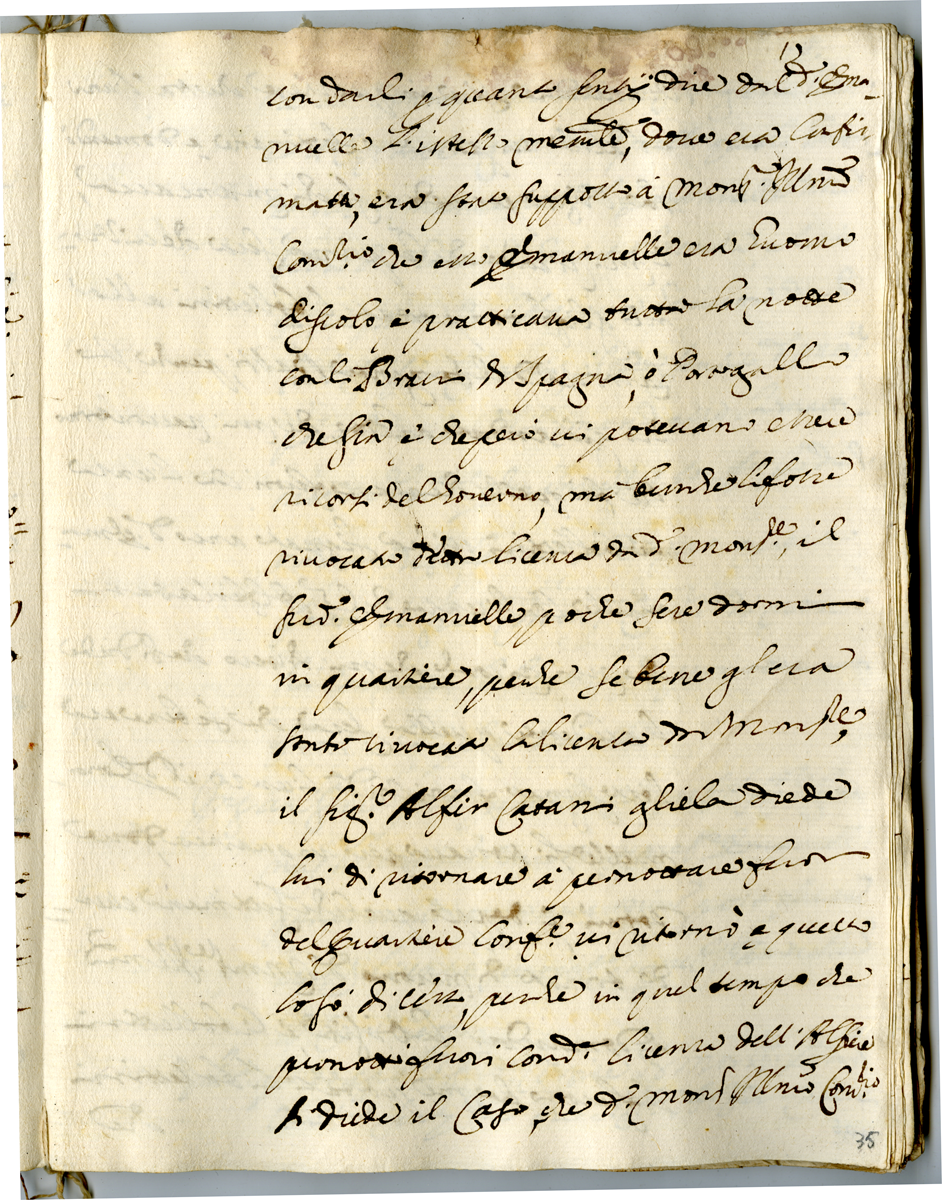 13
con darli p quanto sentij dire dal d.º Ema-
nuelle l'istesso mentre, dove era Confir
mato, era stato supposto à Mons.r Ill.mo
Com.rio che esso Emanuelle era huomo
discolo è pratticava tutta la notte
con li Bravi di Spagna, ò Portogallo
che sia è che perciò vi potevano essere
ricorsi del Governo, mà benche li fosse
rivocata detta licenza da d.º Mons.re, il
sud.º Emanuelle, poche sere dormì
in quartiere, perche se bene gl'era
stata rivocata la licenza da Mons.re,
il sig.r Alfier Catani gliela diede
lui di ritornare à pernottare fuor
del quartiere conf.e vi ritornò e questo
lo sò di certo, perche in quel tempo che
pernottò fuori con d.a licenza dell'Alfiere
si diede il Caso, che d.º Mons.r Ill.mo Com.rio
35